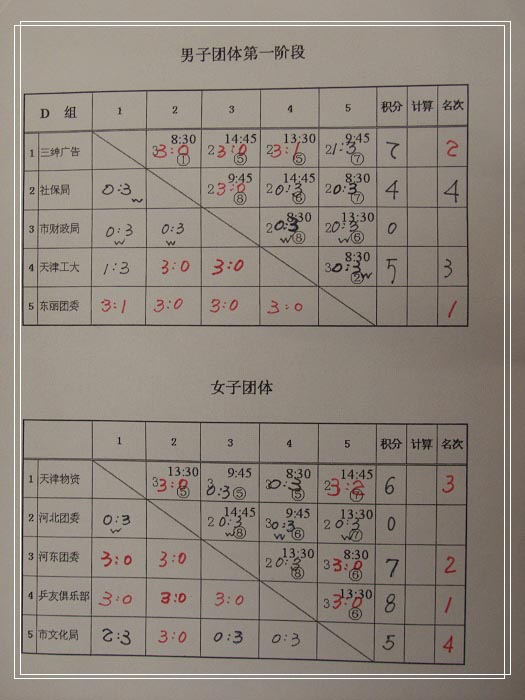 男子团体第一阶段
D 组 1 2 3 4 5 积分 计算 名次
1 三绅广告 8:30 3 3:0 ① 14:45 2 3:0 ⑤ 13:30 2 3:1 ⑤ 9:45 2 1:3 ⑦ 7 2
2 社保局 0:3 W 9:45 2 3:0 ⑧ 14:45 2 0:3 ⑥ 8:30 2 0:3 ⑦ 4 4
3 市财政局 0:3 W 0:3 W 8:30 2 0:3 W ⑧ 13:30 2 0:3 W ⑥ 0
4 天津工大 1:3 3:0 3:0 8:30 3 0:3 W ② 5 3
5 东丽团委 3:1 3:0 3:0 3:0 1
女子团体
1 2 3 4 5 积分 计算 名次
1 天津物资 13:30 3 3:0 ⑤ 9:45 3 0:3 ③ 8:30 3 0:3 ⑤ 14:45 2 3:2 ⑦ 6 3
2 河北团委 0:3 W 14:45 2 0:3 W ⑧ 9:45 3 0:3 W ⑥ 13:30 2 0:3 W ⑦ 0
3 河东团委 3:0 3:0 13:30 2 0:3 ⑧ 8:30 3 3:0 ⑥ 7 2
4 乒友俱乐部 3:0 3:0 3:0 13:30 3 3:0 ⑥ 8 1
5 市文化局 2:3 3:0 0:3 0:3 5 4